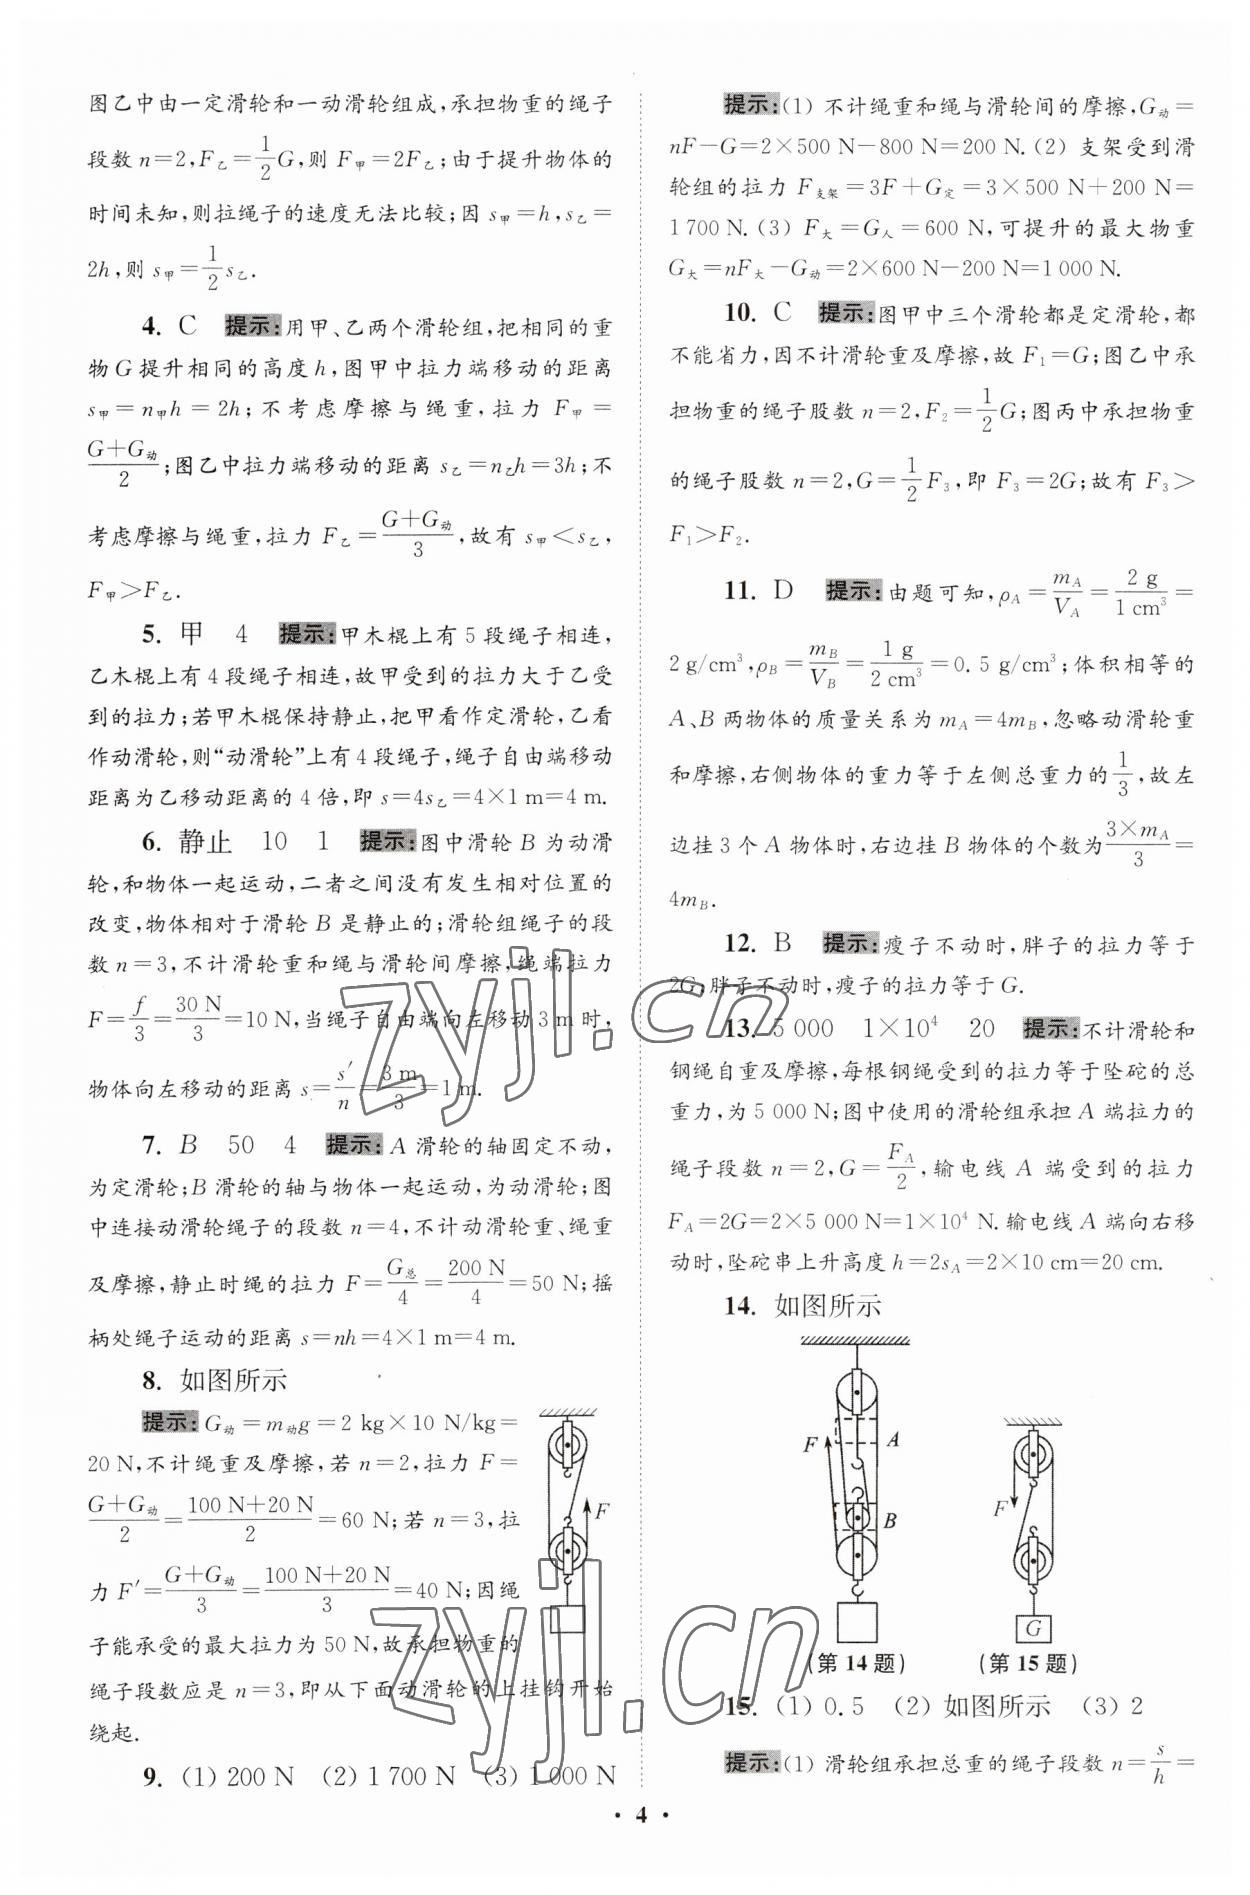 图乙中由一定滑轮和一动滑轮组成,承担物重的绳子
段数 n=2,F乙=1/2G,则 F甲=2F乙;由于提升物体的
时间未知,则拉绳子的速度无法比较;因 s甲=h,s乙=
2h,则 s甲=1/2s乙.
4. C 提示:用甲、乙两个滑轮组,把相同的重
物 G 提升相同的高度 h,图甲中拉力端移动的距离
s甲=n甲h=2h;不考虑摩擦与绳重,拉力 F甲=
(G+G动)/2;图乙中拉力端移动的距离 s乙=n乙h=3h;不
考虑摩擦与绳重,拉力 F乙=(G+G动)/3,故有 s甲<s乙,
F甲>F乙.
5. 甲 4 提示:甲木棍上有 5 段绳子相连,
乙木棍上有 4 段绳子相连,故甲受到的拉力大于乙受
到的拉力;若甲木棍保持静止,把甲看作定滑轮,乙看
作动滑轮,则“动滑轮”上有 4 段绳子,绳子自由端移动
距离为乙移动距离的 4 倍,即 s=4s乙=4×1 m=4 m.
6. 静止 10 1 提示:图中滑轮 B 为动滑
轮,和物体一起运动,二者之间没有发生相对位置的
改变,物体相对于滑轮 B 是静止的;滑轮组绳子的段
数 n=3,不计滑轮重和绳与滑轮间摩擦,绳端拉力
F=f/3=30 N/3=10 N,当绳子自由端向左移动 3 m 时,
物体向左移动的距离 s=s′/n=3 m/3=1 m.
7. B 50 4 提示:A 滑轮的轴固定不动,
为定滑轮;B 滑轮的轴与物体一起运动,为动滑轮;图
中连接动滑轮绳子的段数 n=4,不计动滑轮重、绳重
及摩擦,静止时绳的拉力 F=G总/4=200 N/4=50 N;摇
柄处绳子运动的距离 s=nh=4×1 m=4 m.
8. 如图所示
提示:G动=m动g=2 kg×10 N/kg=
20 N,不计绳重及摩擦,若 n=2,拉力 F=
(G+G动)/2=(100 N+20 N)/2=60 N;若 n=3,拉
力 F′=(G+G动)/3=(100 N+20 N)/3=40 N;因绳
子能承受的最大拉力为 50 N,故承担物重的
绳子段数应是 n=3,即从下面动滑轮的上挂钩开始
绕起.
F
9. (1) 200 N (2) 1 700 N (3) 1 000 N
提示:(1) 不计绳重和绳与滑轮间的摩擦,G动=
nF-G=2×500 N-800 N=200 N. (2) 支架受到滑
轮组的拉力 F支架=3F+G定=3×500 N+200 N=
1 700 N. (3) F大=G人=600 N,可提升的最大物重
G大=nF大-G动=2×600 N-200 N=1 000 N.
10. C 提示:图甲中三个滑轮都是定滑轮,都
不能省力,因不计滑轮重及摩擦,故 F₁=G;图乙中承
担物重的绳子股数 n=2,F₂=1/2G;图丙中承担物重
的绳子股数 n=2,G=1/2F₃,即 F₃=2G;故有 F₃>
F₁>F₂.
11. D 提示:由题可知,ρA=mA/VA=2 g/1 cm³=
2 g/cm³,ρB=mB/VB=1 g/2 cm³=0.5 g/cm³;体积相等的
A、B 两物体的质量关系为 mA=4mB,忽略动滑轮重
和摩擦,右侧物体的重力等于左侧总重力的1/3,故左
边挂 3 个 A 物体时,右边挂 B 物体的个数为(3×mA)/3=
4mB.
12. B 提示:瘦子不动时,胖子的拉力等于
2G;胖子不动时,瘦子的拉力等于 G.
13. 5 000 1×10⁴ 20 提示:不计滑轮和
钢绳自重及摩擦,每根钢绳受到的拉力等于坠砣的总
重力,为 5 000 N;图中使用的滑轮组承担 A 端拉力的
绳子段数 n=2,G=FA/2,输电线 A 端受到的拉力
FA=2G=2×5 000 N=1×10⁴ N. 输电线 A 端向右移
动时,坠砣串上升高度 h=2sA=2×10 cm=20 cm.
14. 如图所示
F A B
F G
(第 14 题) (第 15 题)
15. (1) 0.5 (2) 如图所示 (3) 2
提示:(1) 滑轮组承担总重的绳子段数 n=s/h=
· 4 ·
zyjl.cn
zyjl.cn